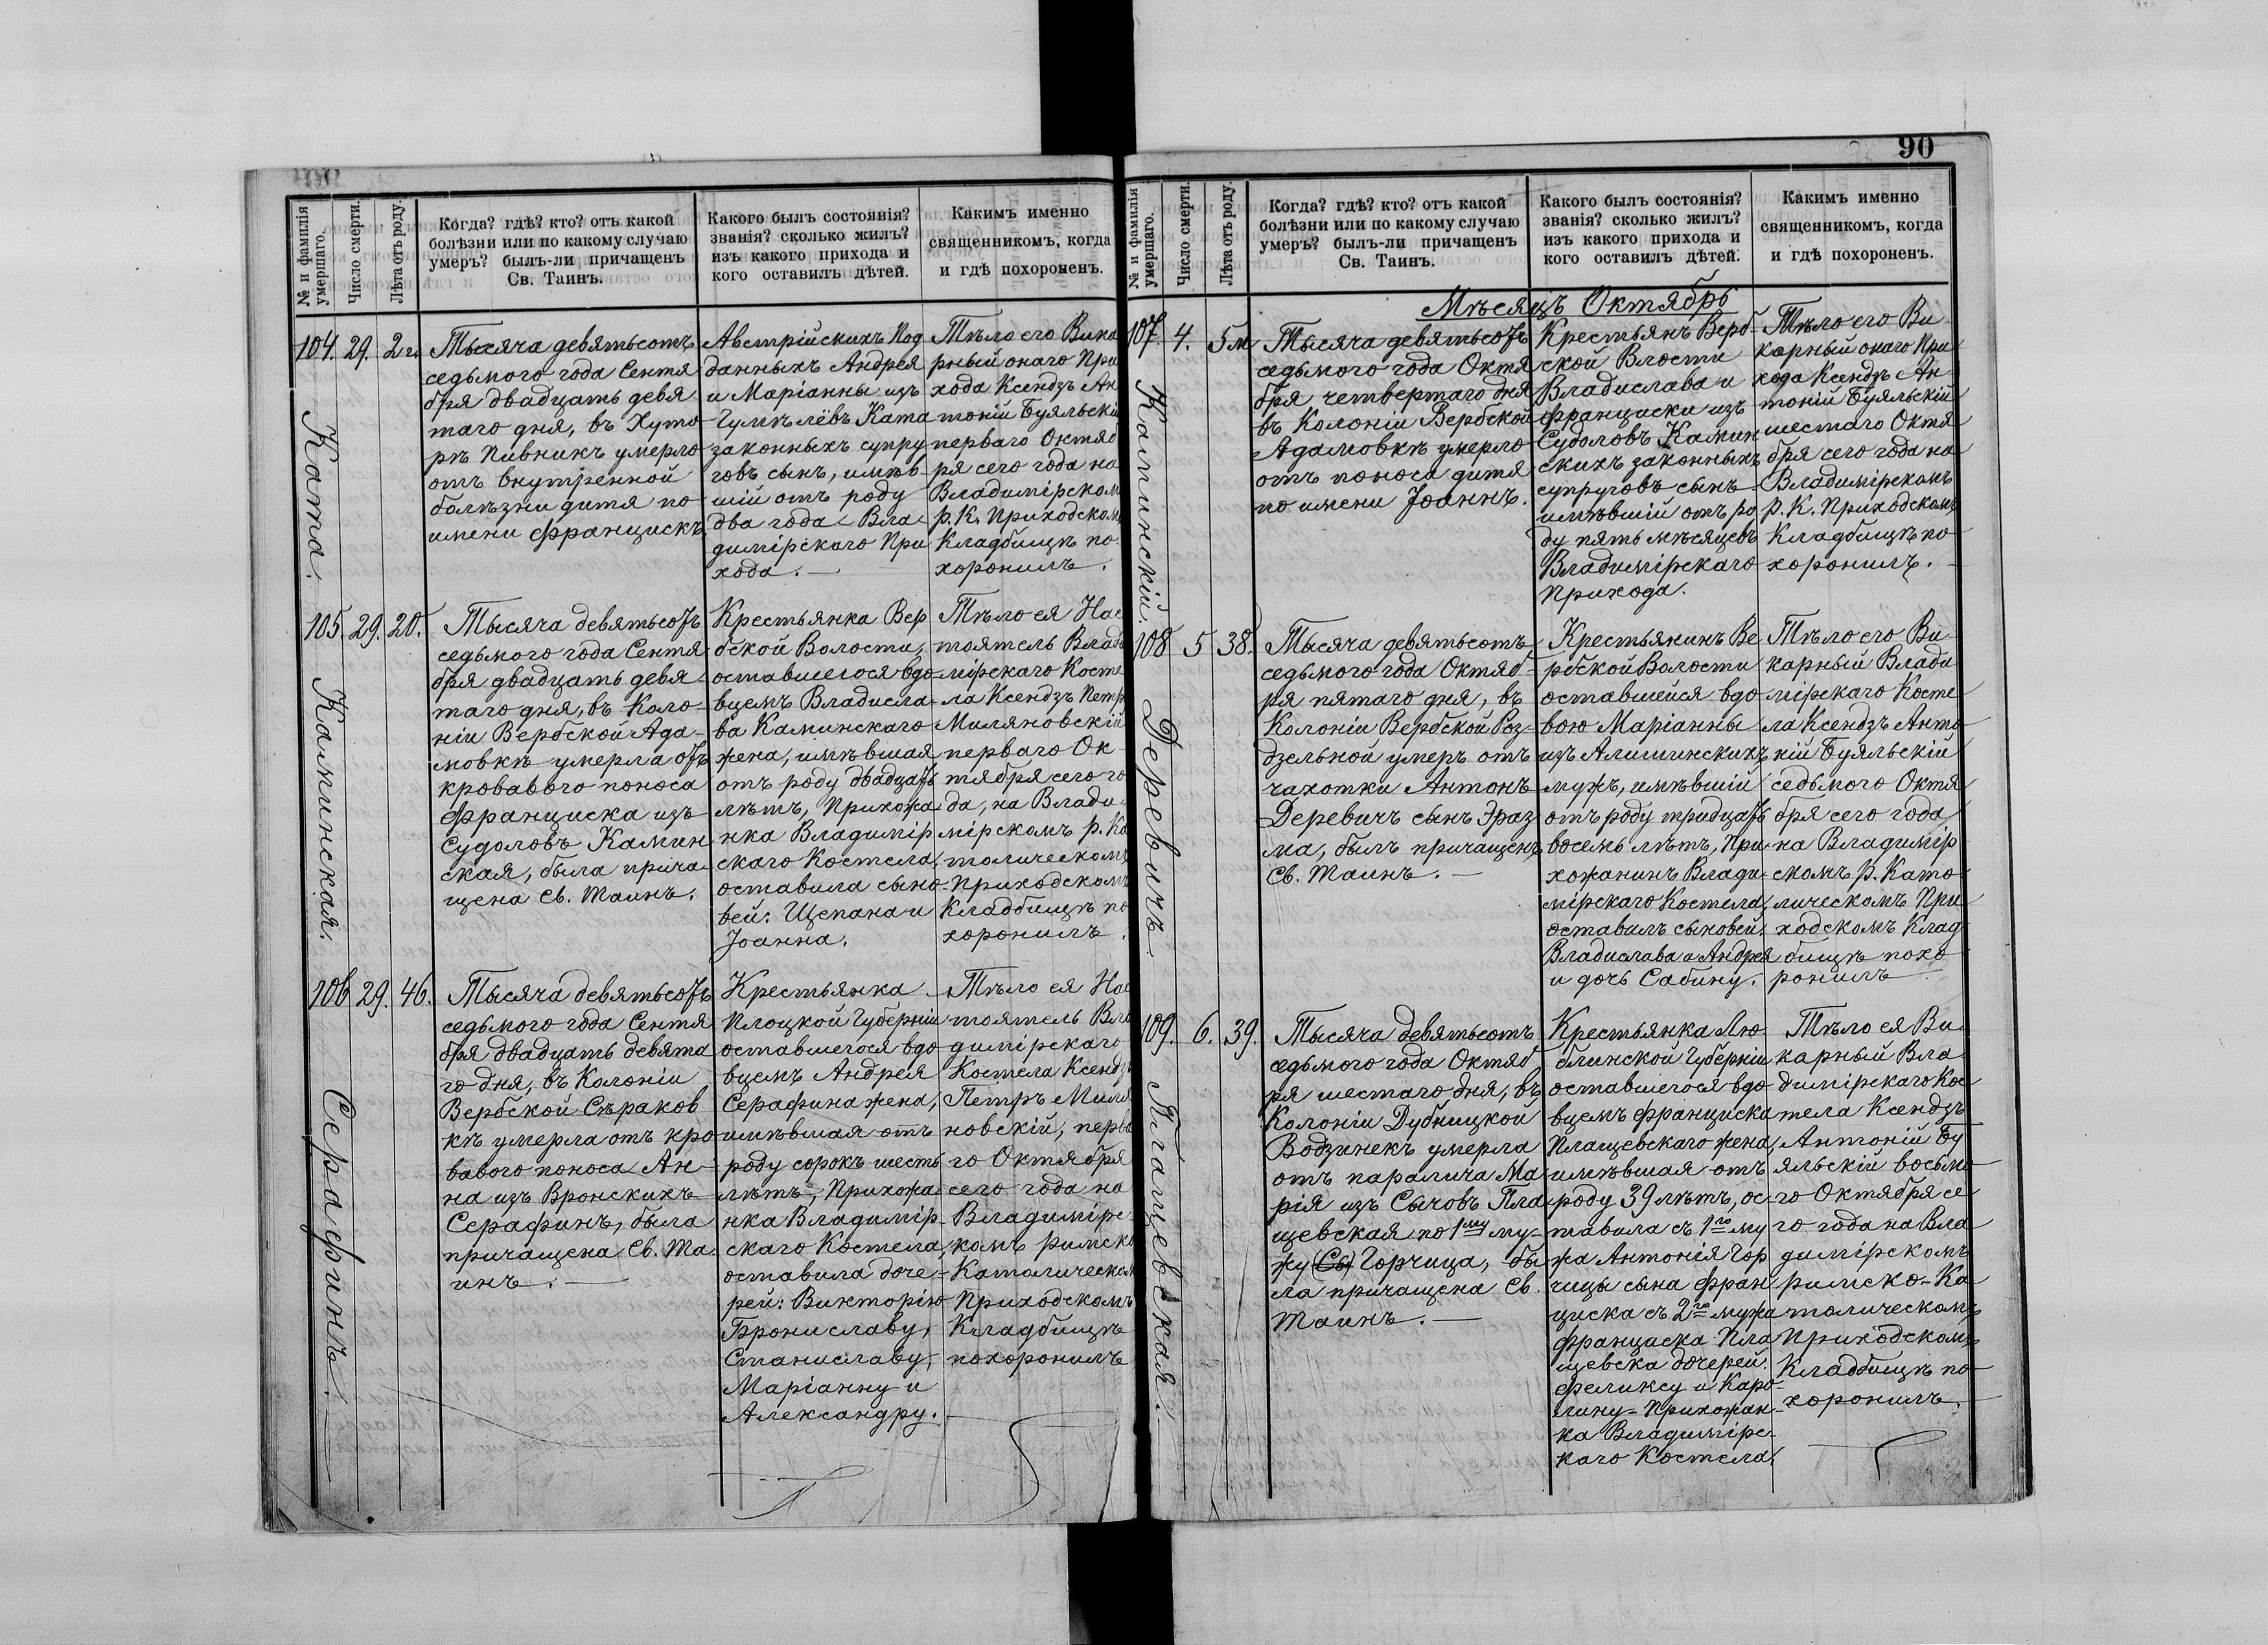 № и фамилія
умершаго.
Число смерти.
Лѣта отъ роду.
Когда? гдѣ? кто? отъ какой
болѣзни или по какому случаю
умеръ? былъ-ли причащенъ
Св. Таинъ.
Какого былъ состоянія?
званія? сколько жилъ?
изъ какого прихода и
кого оставилъ дѣтей.
Какимъ именно
священникомъ, когда
и гдѣ похороненъ.
104. 29. 2 г.
Ката.
Тысяча девятьсотъ
седьмого года Сентя
бря двадцать девя
таго дня, въ Хуто-
рѣ Пивникъ умерло
отъ внутренной
болѣзни дитя по
имени Францискъ.
Австрійскихъ Под
данныхъ Андрея
и Маріанны изъ
Чумѣлёвъ Ката
законныхъ супру
говъ сынъ, имѣв-
шій отъ роду
два года Вла
димірскаго При
хода. —
Тѣло его Вика
рный онаго При
хода Ксендзъ Ан
тоній Буяльскій
перваго Октяб
ря сего года на
Владимірском
р. К. Приходском
Кладбищѣ по-
хоронилъ.
105. 29. 20.
Каминская.
Тысяча девятьсотъ
седьмого года Сентя
бря двадцать девя
таго дня, въ Коло-
ніи Вербской Ада-
мовкѣ умерла отъ
кровавого поноса
Франциска изъ
Судоловъ Камин
ская, была прича-
щена Св. Таинъ.
Крестьянка Вер
бской Волости,
оставшегося вдо-
вцемъ Владисла-
ва Каминскаго
жена, имѣвшая
отъ роду двадцать
лѣтъ, Прихожа
нка Владимір
скаго Костела,
оставила сыно-
вей: Щепана и
Іоанна.
Тѣло ея Нас
тоятель Влади
мірскаго Косте
ла Ксендзъ Петр
Миляновскій
перваго Ок-
тября сего го
да, на Влади-
мірскомъ р. Ка
толическомъ
Приходскомъ
Кладбищѣ по
хоронилъ.
106 29. 46.
Серафинъ.
Тысяча девятьсотъ
седьмого года Сентя
бря двадцать девята
го дня, въ Колоніи
Вербской Сѣраков
кѣ умерла отъ кро
вавого поноса Ан-
на изъ Вронскихъ
Серафинъ, была
причащена Св. Та
инъ. —
Крестьянка
Плоцкой Губерніи
оставшегося вдо
вцемъ Андрея
Серафина жена,
имѣвшая отъ
роду сорокъ шесть
лѣтъ, Прихожа
нка Владимір-
скаго Костела,
оставила доче-
рей: Викторію
Брониславу,
Станиславу,
Маріанну и
Александру.
Тѣло ея Нас
тоятель Вла
димірскаго
Костела Ксендзъ
Петръ Миля
новскій, перва
го Октября
сего года на
Владимірс
комъ римско
Католическом
Приходскомъ
Кладбищѣ
похоронилъ
90
№ и фамилія
умершаго.
Число смерти.
Лѣта отъ роду.
Когда? гдѣ? кто? отъ какой
болѣзни или по какому случаю
умеръ? былъ-ли причащенъ
Св. Таинъ.
Какого былъ состоянія?
званія? сколько жилъ?
изъ какого прихода и
кого оставилъ дѣтей.
Какимъ именно
священникомъ, когда
и гдѣ похороненъ.
Мѣсяцъ Октябрь
107. 4. 5 м
Каминскій.
Тысяча девятьсотъ
седьмого года Октя
бря четвертаго дня
въ Колоніи Вербской
Адамовкѣ умерло
отъ поноса дитя
по имени Іоаннъ.
Крестьянъ Верб-
ской Влости
Владислава и
Франциски изъ
Судоловъ Камин
скихъ законныхъ
супруговъ сынъ
имѣвшій отъ ро
ду пять мѣсяцевъ
Владимірскаго
Прихода.
Тѣло его Ви-
карный онаго При
хода Ксендзъ Ан-
тоній Буяльскій
шестаго Октя
бря сего года на
Владимірскомъ
р. К. Приходскомъ
Кладбищѣ по
хоронилъ.
108 5 38.
Деревичъ.
Тысяча девятьсотъ
седьмого года Октяб-
ря пятаго дня, въ
Колоніи Вербской Роз-
дзельной умеръ отъ
чахотки Антонъ
Деревичъ сынъ Эраз
ма, былъ причащенъ
Св. Таинъ. —
Крестьянинъ Ве
рбской Волости
оставшейся вдо
вою Маріанны
изъ Алишинскихъ
мужъ, имѣвшій
отъ роду тридцать
восемь лѣтъ, При
хожанинъ Влади-
мірскаго Костела,
оставилъ сыновей:
Владислава а Андрея
и дочь Сабину.
Тѣло его Ви-
карный Влади
мірскаго Косте
ла Ксендзъ Анто
ній Буяльскій
седьмого Октя
бря сего года
на Владимір
скомъ р. Като-
лическомъ При
ходскомъ Клад
бищѣ похо
ронилъ
109. 6. 39.
Плащевская.
Тысяча девятьсотъ
седьмого года Октяб
ря шестаго дня, въ
Колоніи Дубницкой
Водзинекъ умерла
отъ паралича Ма
рія изъ Сычовъ Пла
щевская по 1му му-
жу (Сы) Горчица, бы
ла причащена Св.
Таинъ. —
Крестьянка Лю-
блинской Губерніи
оставшегося вдо
вцемъ Франциска
Плащевскаго жена,
имѣвшая отъ
роду 39 лѣтъ, ос-
тавила съ 1го му
жа Антонія Гор
чицы сына Фран
циска съ 2го мужа
Франциска Пла
щевска дочерей:
Феликсу и Каро-
лину - Прихожан-
ка Владимірс-
каго Костела.
Тѣло ея Ви-
карный Вла-
димірскаго Кос
тела Ксендзъ
Антоній Бу
яльскій восьмо
го Октября се
го года на Вла
димірскомъ
римско-Ка
толическомъ
Приходскомъ
Кладбищѣ по-
хоронилъ.